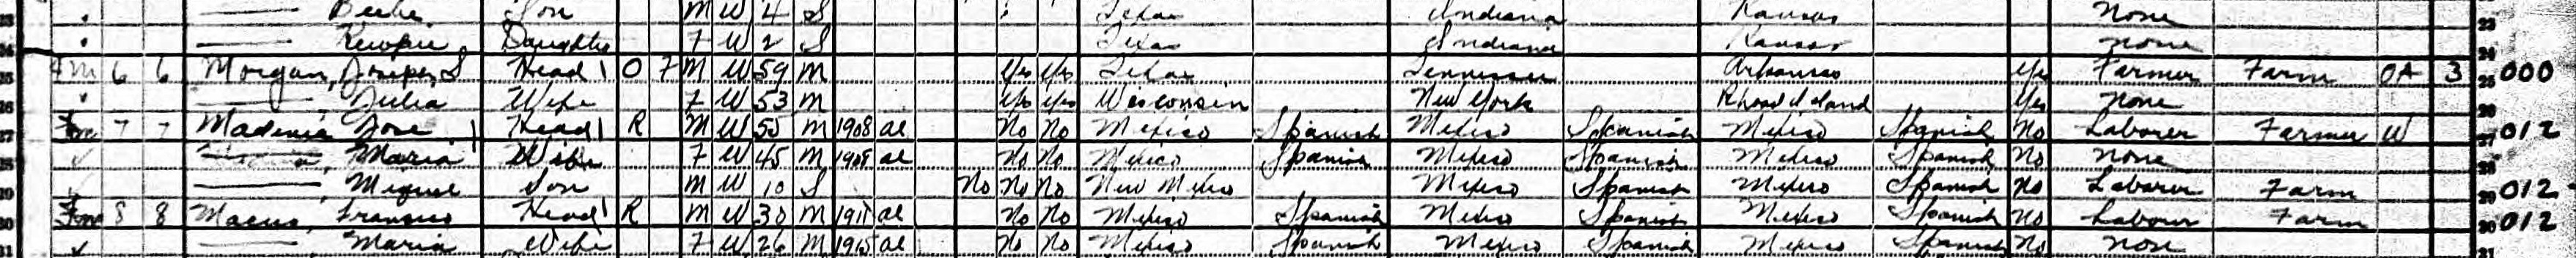 23 Son M W 4 S Texas Indiana Kansas None 23
24 Daughter F W 2 S Texas Indiana Kansas none 24
25 Fm 6 6 Morgan, S Head 1 O F M W 59 M Yes Yes Texas Tennessee Arkansas Yes Farmer Farm OA 3 25 000
26 Julia Wife F W 53 M Yes Yes Wisconsin New York Rhode Island Yes None 26
27 Fm 7 7 Jose Head 1 R M W 55 M 1908 al No No Mexico Spanish Mexico Spanish Mexico Spanish No Laborer Farmer W 27 012
28 Maria Wife F W 45 M 1908 al No No Mexico Spanish Mexico Spanish Mexico Spanish No None 28
29 Miguel Son M W 10 S No No No New Mexico Mexico Spanish Mexico Spanish No Laborer Farm 29 012
30 Fm 8 8 Francisco Head 1 R M W 30 M al No No Mexico Spanish Mexico Spanish Mexico Spanish No Labour Farm 30 012
31 Maria Wife F W 26 M 1915 al No No Mexico Spanish Mexico Spanish Mexico Spanish No None 31